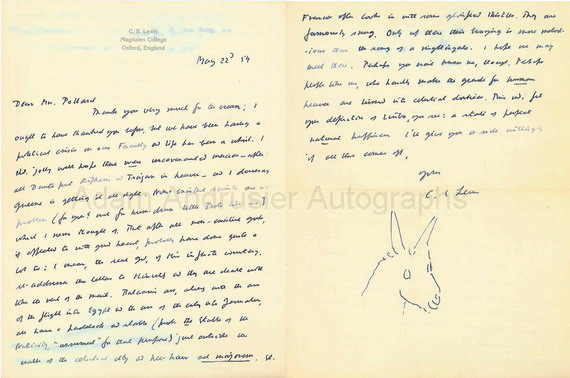 C. S. Lewis
Magdalen College
Oxford, England
May 22d 54
Dear Mrs. Pollard
Thank you very much for the ; I
ought to have thanked you before, but we have been having a
political crisis in our Faculty and life has been a whirl. I
jolly well hope there were uncovenanted mercies – after
all Dante put Ripheus and Trajan in heaven – and I
is getting it all right. Non-existent are a
problem (for you? and for
which I never thought of. But after all non-existent gods,
if appealed to with good heart, probably have done quite a
lot: I mean, the real God, of His infinite courtesy,
re-addresses the letters to Himself and they are dealt with
like the rest of the mail. are, along with the ass
of the flight into Egypt and the ass of the entry into Jerusalem,
have a paddock and stable (prob. the Stable of the
Nativity, "assumed" for that purpose) just outside the
walls of the celestial city and hee-haw ad majorem. St.
Francis often looks in with some glorified thistles. They are
. Only up there their braying is more melod-
ious than the song of a nightingale. I hope we may
meet them. Perhaps you won't know me, though. Perhaps
people like me, who hardly make the grade for human
heaven are turned into celestial donkeys. This wd. fit
your definition of Limbo, you see: a state of perfect
natural happiness. I'll give you a ride willingly
if all this comes off.
Yours
C. S. Lewis
Adam Andrusier Autographs